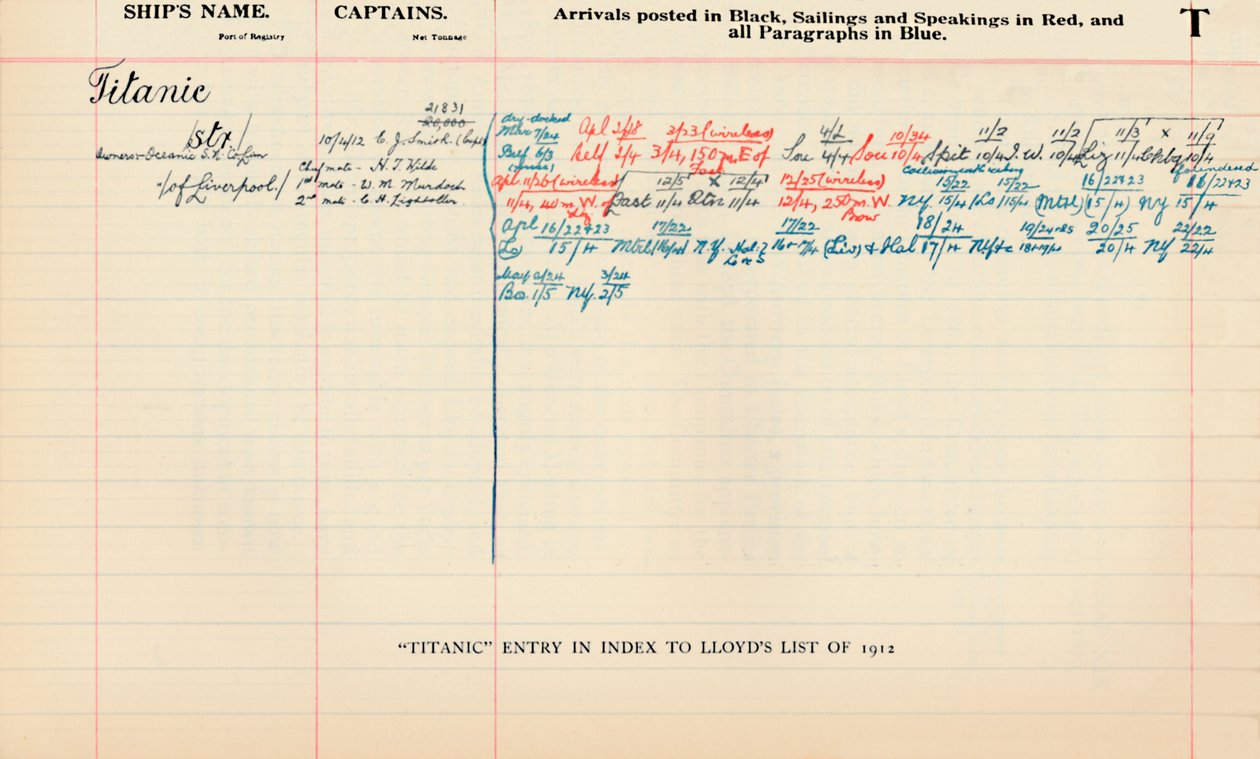 SHIP'S NAME.
Port of Registry
CAPTAINS.
Net Tonnage
Arrivals posted in Black, Sailings and Speakings in Red, and
all Paragraphs in Blue.
T
Titanic
21831
20,000
/str/
Owners-Oceanic S.N. Co
/of Liverpool./
10/4/12 E. J. Smith. (Capt)
Chief mate - H. T. Wilde
1st mate - W. M. Murdoch
2nd mate - C. H. Lightoller
dry-docked
Mar 7/24
Belf 6/3
Apl 2/18 3/23 (wireless) 4/2 10/34 11/2 11/2 11/3 x 11/9
Belf 2/4 3/4, 150 m. E of Fast Sou 4/4 Sou 10/4 Spit 10/4 I.W. 10/4 Liz 11/4 Chbg 10/4
Apl 11/26 (wireless) 12/5 x 12/4 12/25 (wireless) 15/22 15/22 16/22+23
11/4, 40 m. W. of Liz Fast 11/4 Qtn 11/4 12/4, 250 m. W. Brow NY 15/4 Lo 15/4 (Mtrl) 15/4 NY 15/4
foundered
Apl 16/22+23 17/22 17/22 18/24 19/24+25 20/25 22/22
Lo 15/4 Mtrl N.Y. (Liv) + Hal 17/4 NY+c 18+19/4 20/4 NY 22/4
May 2/24 3/24
Bo. 1/5 NY. 2/5
"TITANIC" ENTRY IN INDEX TO LLOYD'S LIST OF 1912